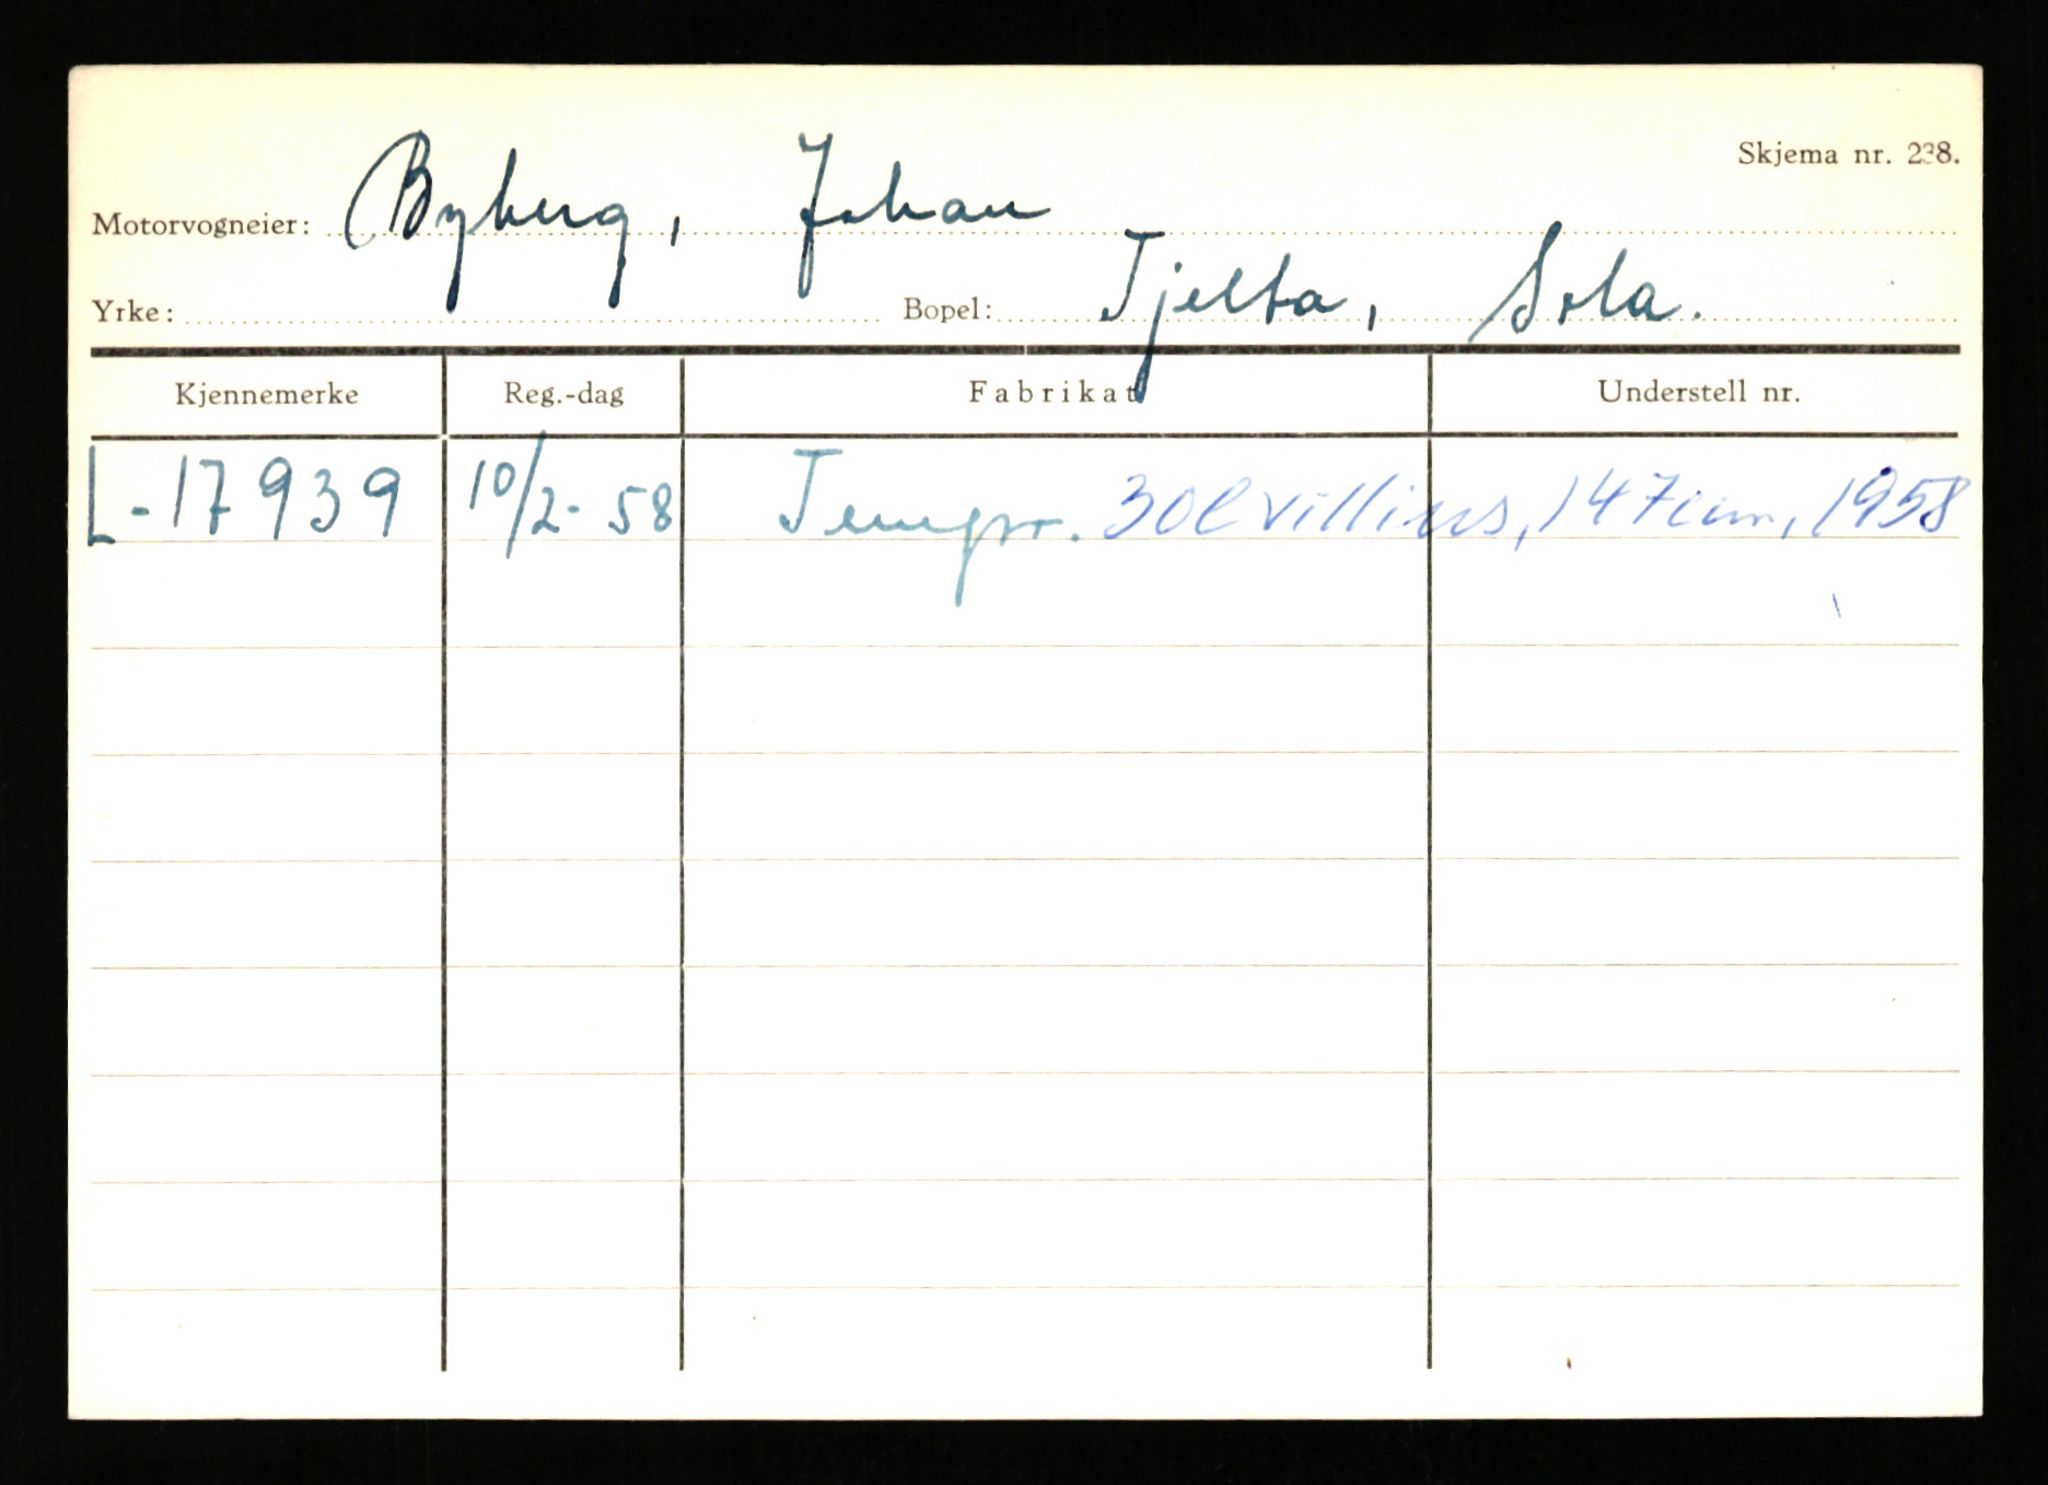 Skjema nr. 238.
Motorvogneier: Byberg, Johan
Yrke: Bopel: Tjelta, Sola.
Kjennemerke Reg.-dag Fabrikat Understell nr.
L-17939 10/2-58 Tempo. 30l villius, 147ccm, 1958